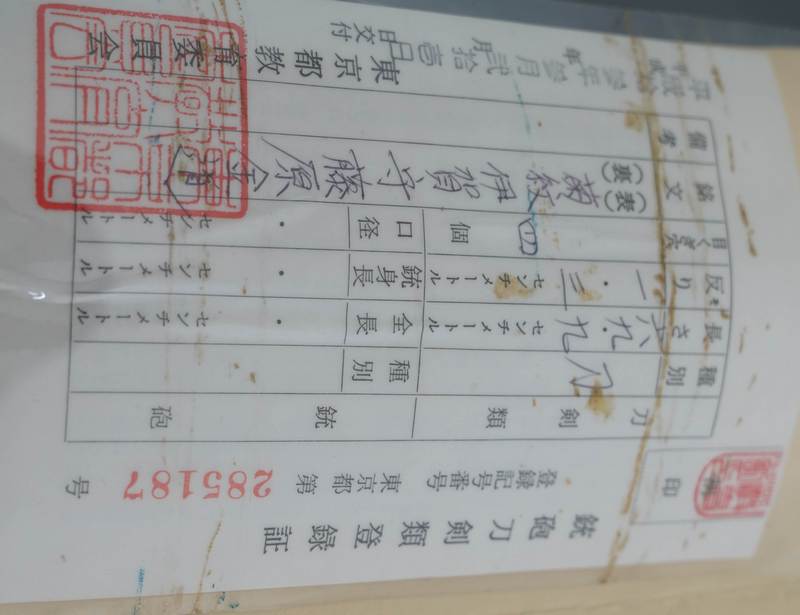 銃砲刀剣類登録証
登録記号番号 東京都第285187号
印
刀剣類
銃砲
種別
刀
種別
長さ
センチメートル
全長
・ センチメートル
反り
一・三 センチメートル
銃身長
・ センチメートル
目くぎ穴
個
口径
・ センチメートル
銘文
(表) 菊紋 伊賀守藤原金道
(裏)
備考
交付
東京都教育委員会